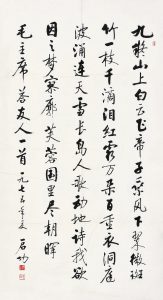 九嶷山上白云飞帝子乘风下翠微斑
竹一枝千滴泪红霞万朵百重衣洞庭
波涌连天雪长岛人歌动地诗我欲
因之梦寥廓芙蓉国里尽朝晖
毛主席答友人一首 一九七五年夏 启功